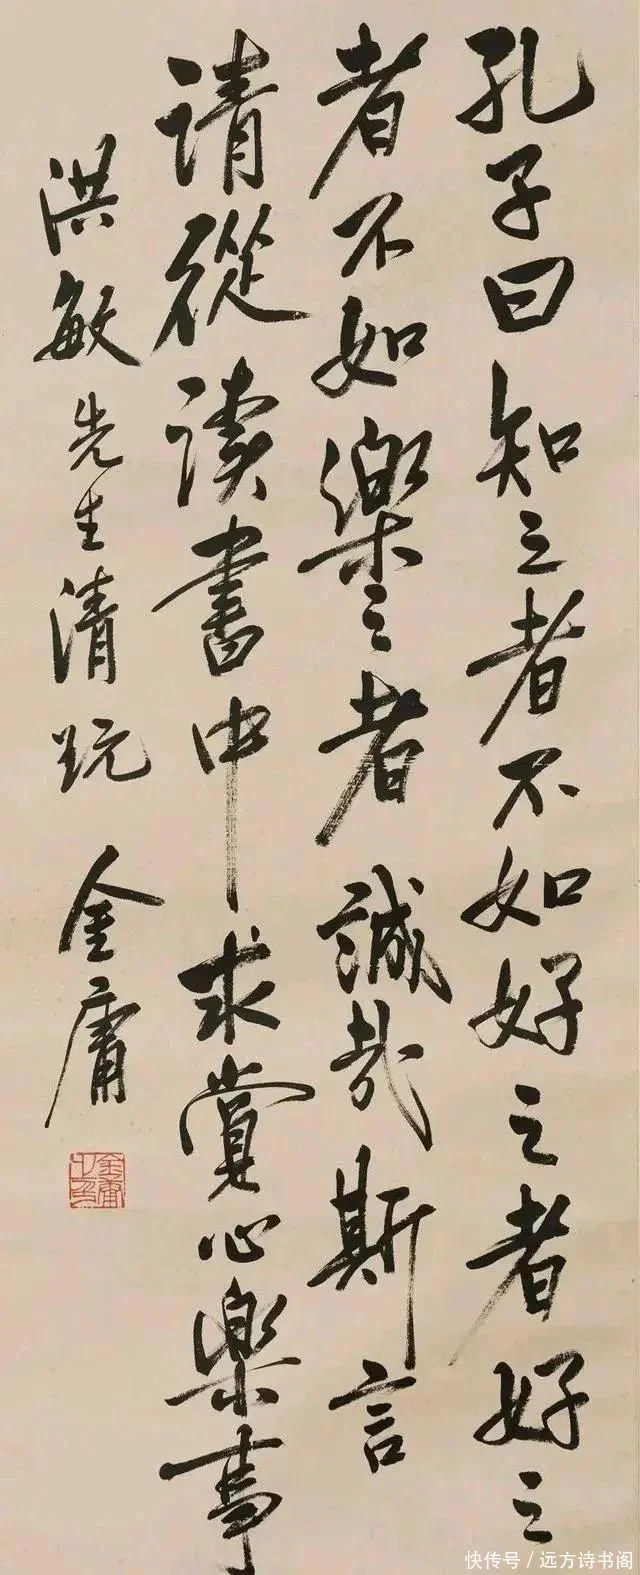 孔子曰知之者不如好之者好之
者不如樂之者誠哉斯言
请從读書中求賞心樂事
洪敏先生清玩
金庸
金庸之印
快传号/远方诗书阁